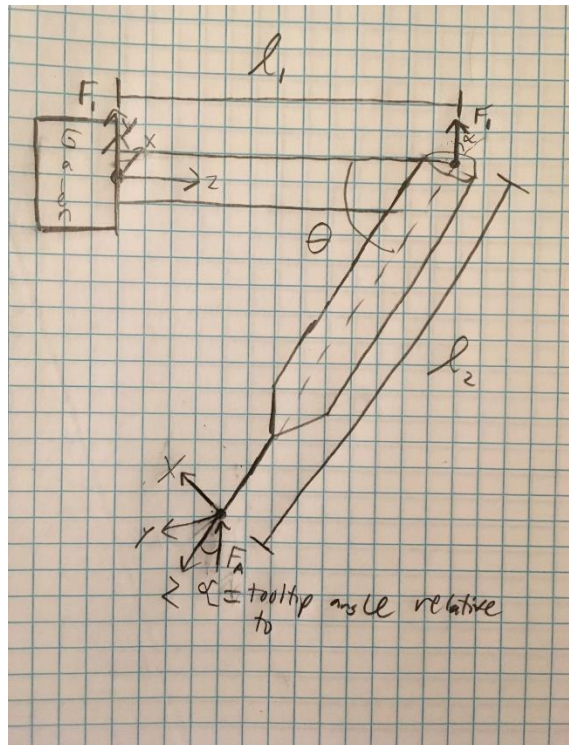 l₁
F₁
F₁
x
z
θ
l₂
X
Y
F_A
Z α = tooltip angle relative
to